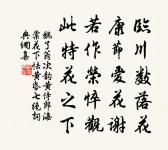 臨川數落花
康節愛花謝
若作榮悴觀
此特花之下
魏了翁次韵黃侍郎海
棠花下怯黃昏七絕詞
典網集